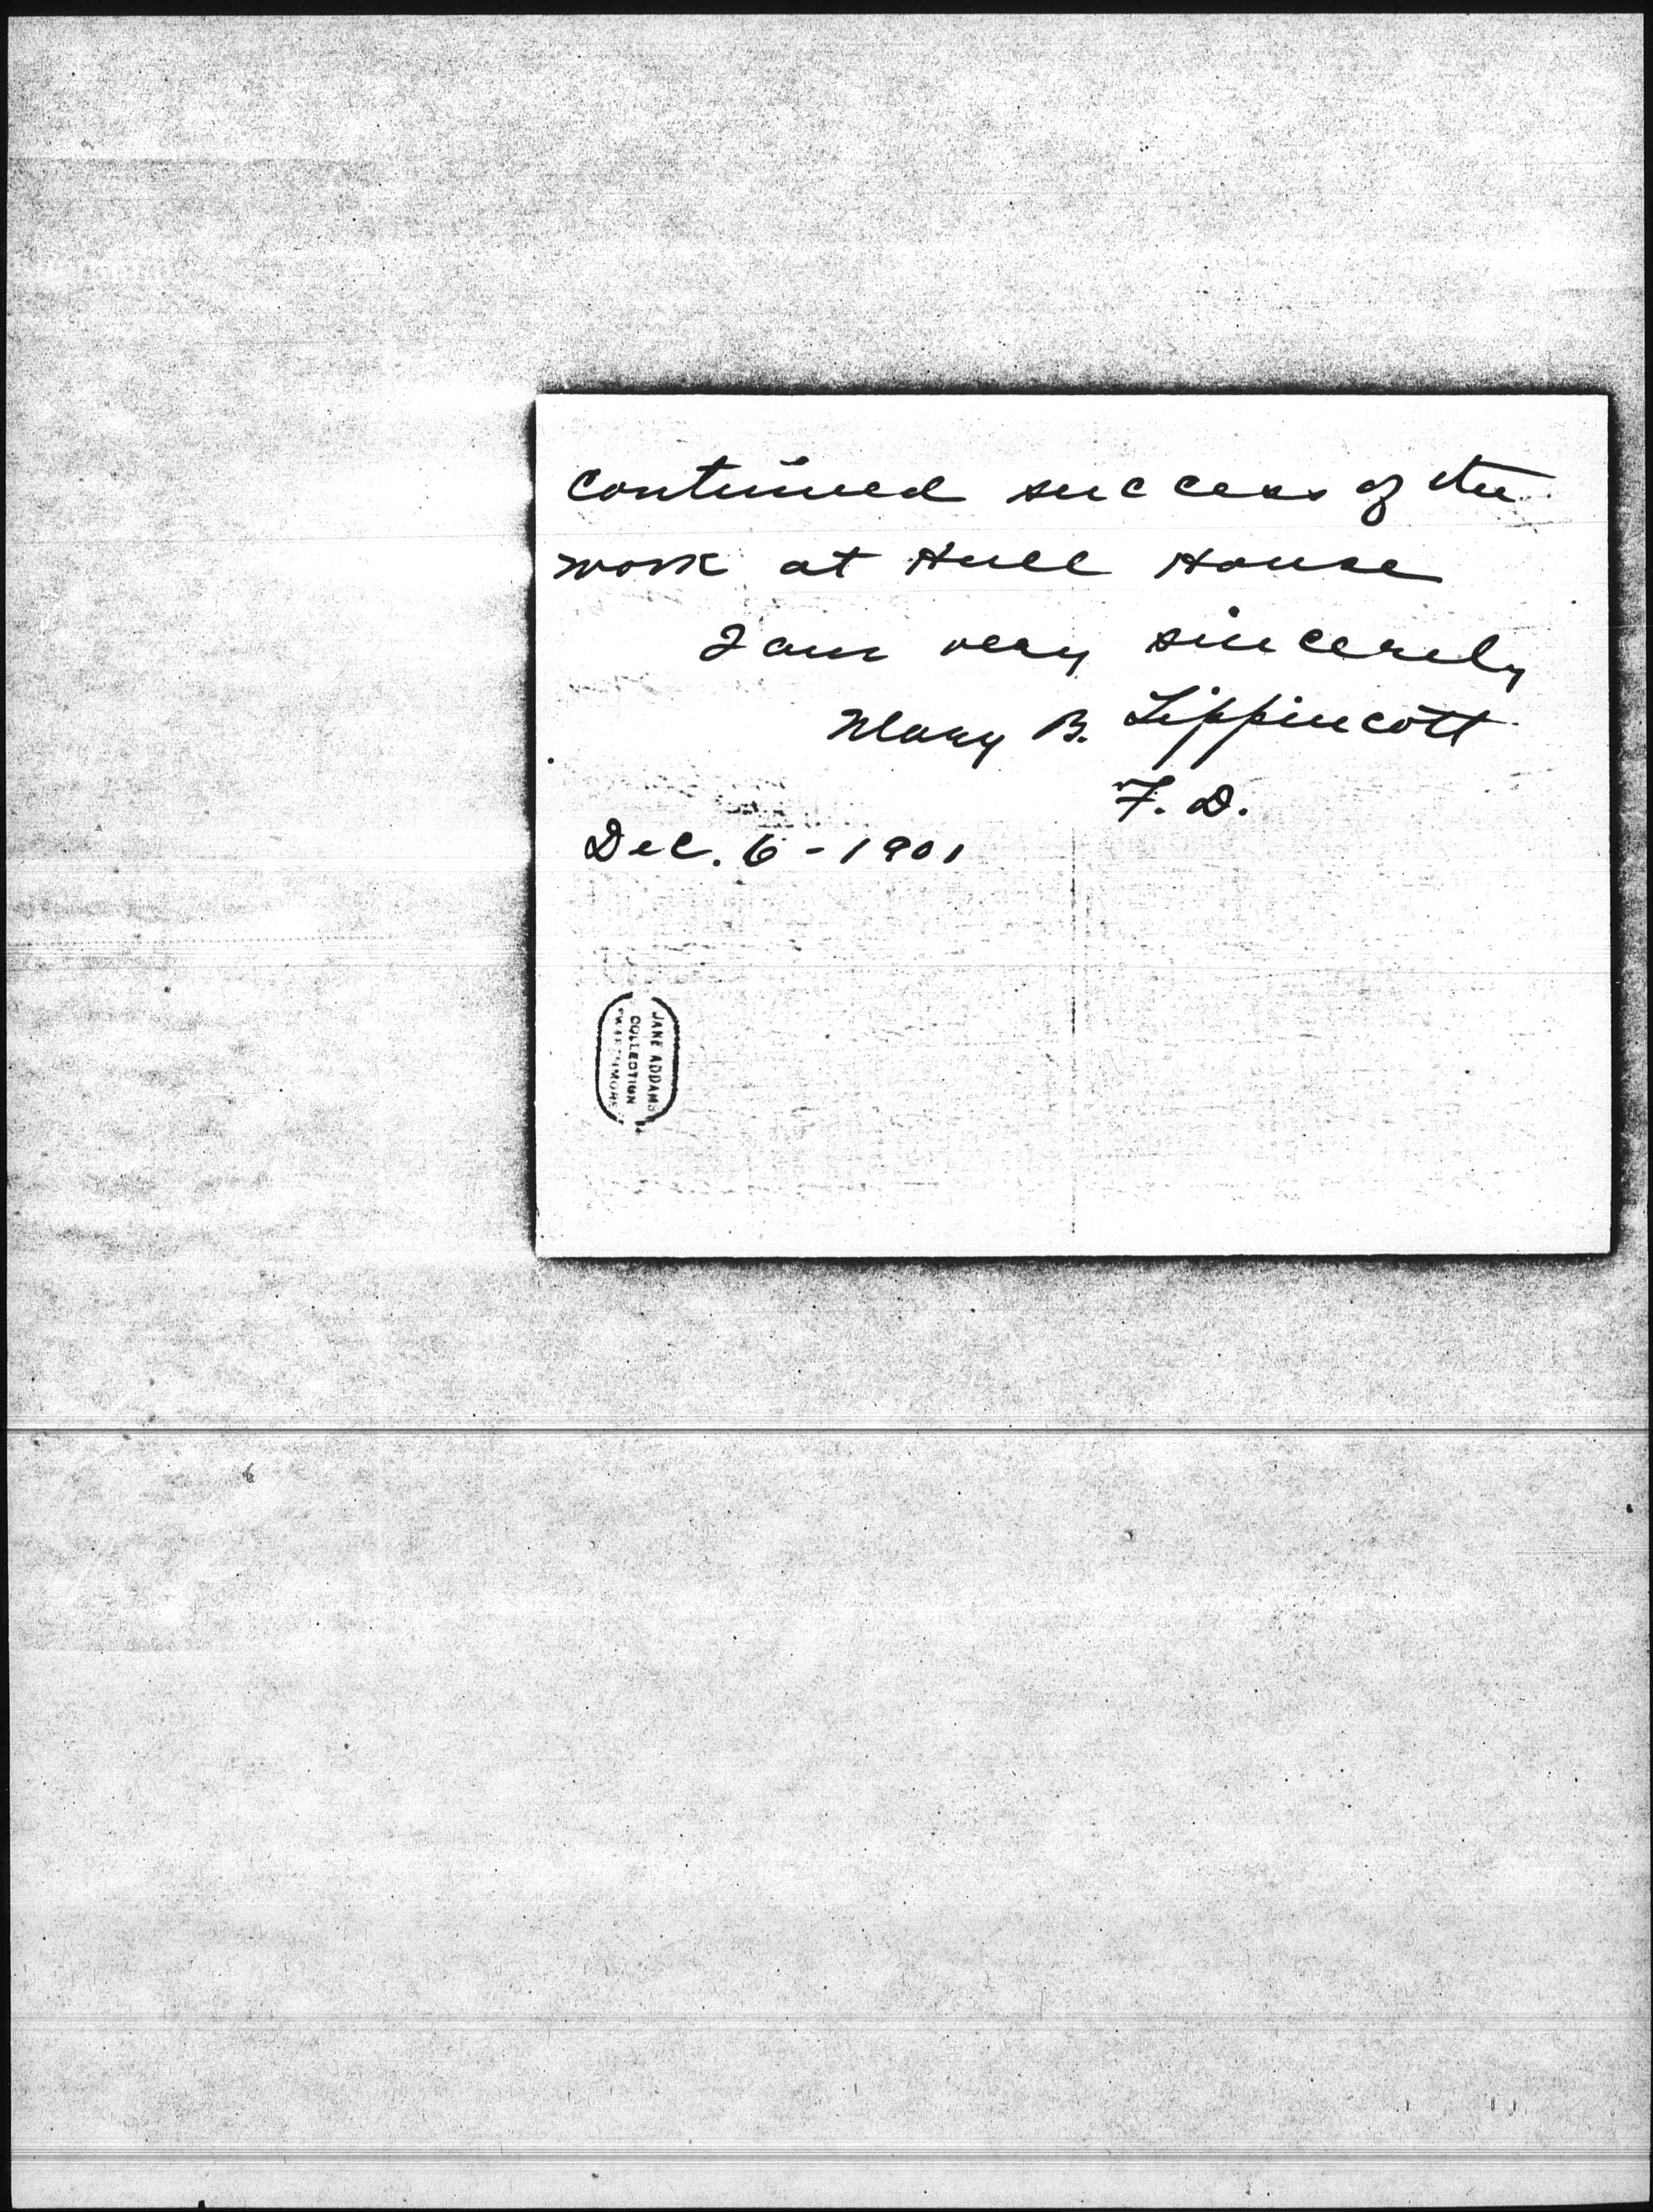 continued success of the
work at Hull House
I am very sincerely
Mary B. Lippincott
F. D.
Dec. 6 - 1901
JANE ADDAMS
COLLECTION
SWARTHMORE